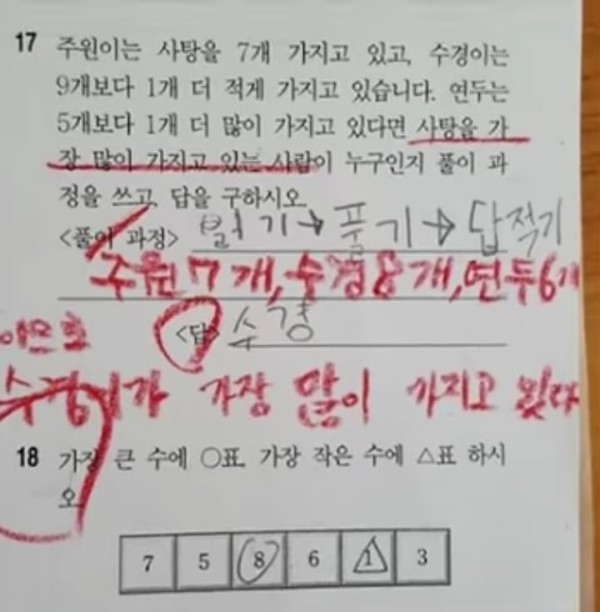 17 주원이는 사탕을 7개 가지고 있고, 수경이는
9개보다 1개 더 적게 가지고 있습니다. 연두는
5개보다 1개 더 많이 가지고 있다면 사탕을 가
장 많이 가지고 있는 사람이 누구인지 풀이 과
정을 쓰고, 답을 구하시오.
<풀이 과정> 읽기→풀기→답적기
주원 7개, 수경 8개, 연두 6개
<답> 수경
이므로
수경이가 가장 많이 가지고 있다
18 가장 큰 수에 ○표, 가장 작은 수에 △표 하시
오.
7 5 8 6 1 3